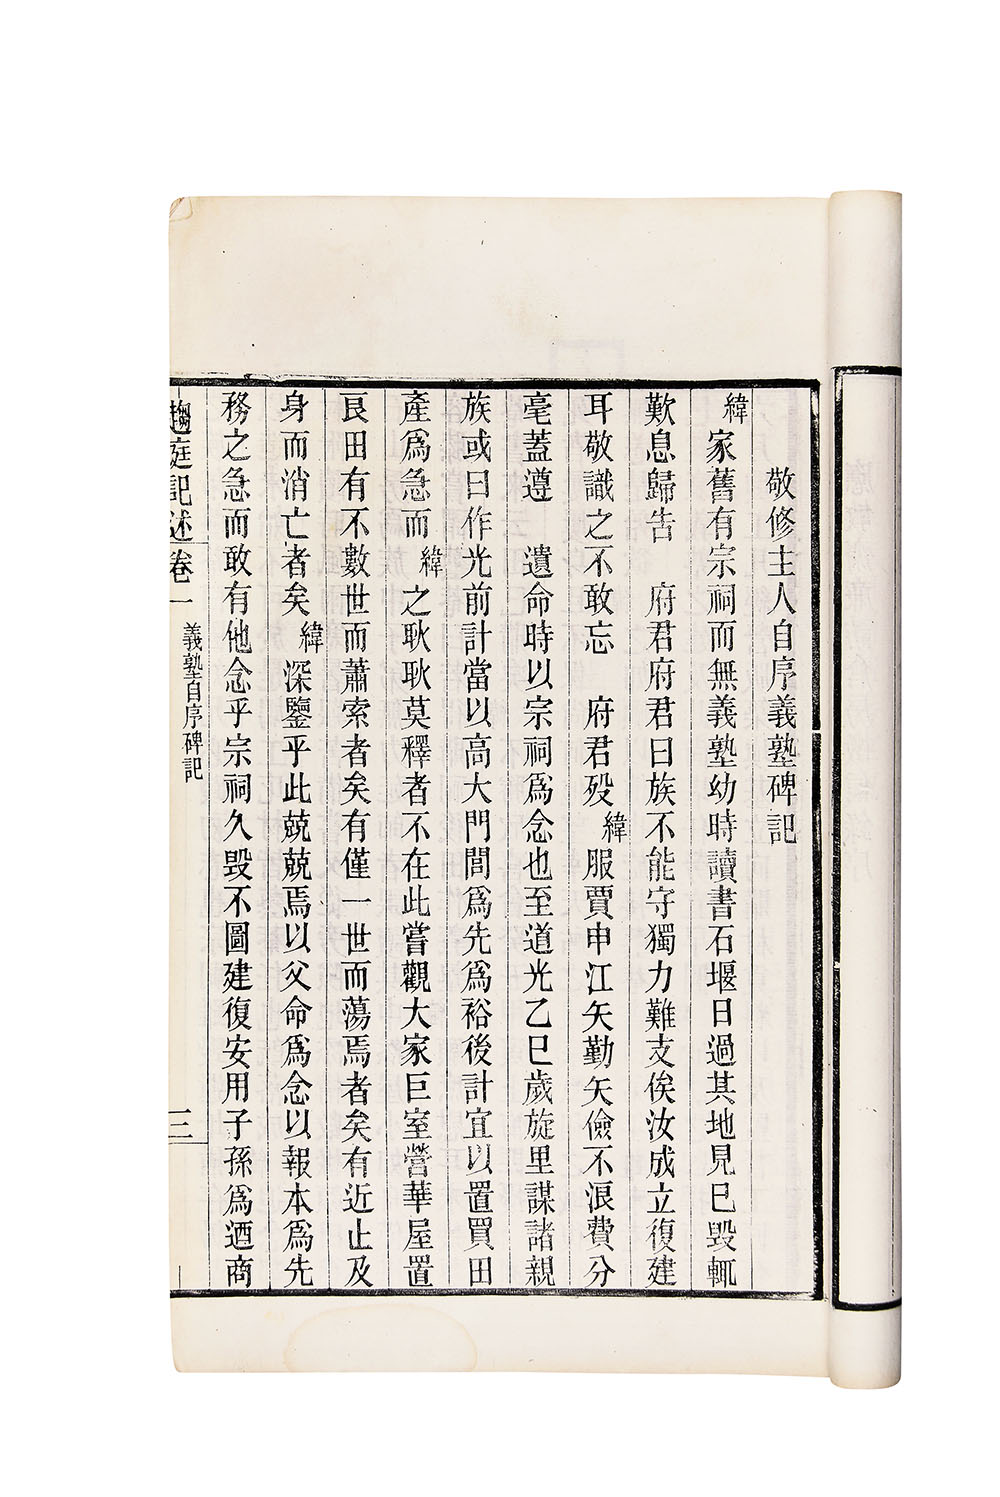 敬修主人自序義塾碑記
緯家舊有宗祠而無義塾幼時讀書石堰日過其地見已毀輒
歎息歸告　府君府君曰族不能守獨力難支俟汝成立復建
耳敬識之不敢忘　府君殁緯服賈申江矢勤矢儉不浪費分
毫蓋遵　遺命時以宗祠爲念也至道光乙巳歲旋里謀諸親
族或曰作光前計當以高大門閭爲先爲裕後計宜以置買田
產爲急而緯之耿耿莫釋者不在此嘗觀大家巨室營華屋置
良田有不數世而蕭索者矣有僅一世而蕩焉者矣有近止及
身而消亡者矣緯深鑒乎此兢兢焉以父命爲念以報本爲先
務之急而敢有他念乎宗祠久毀不圖建復安用子孫爲迺商
趨庭記述卷一　義塾自序碑記　三